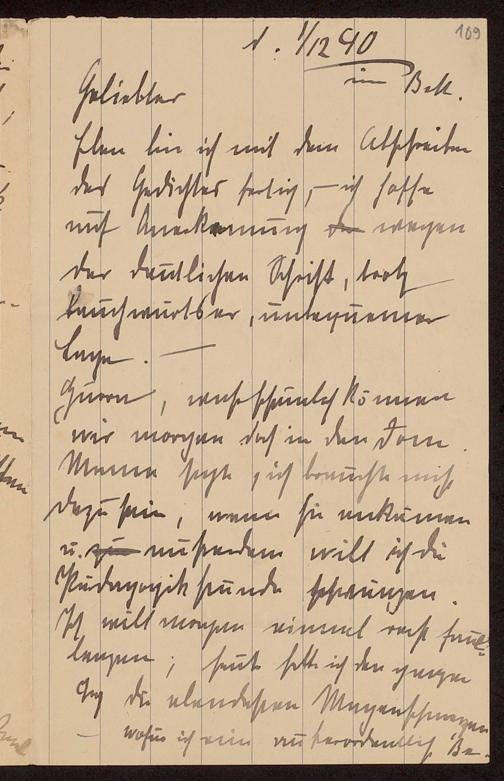 109
d. 1/12 90
im Bett.
Geliebter
Eben bin ich mit dem Abschreiben
des Gedichtes fertig, – ich hoffe
auf Anerkennung wegen
der deutlichen Schrift, trotz
bauchwärtser, unbequemer
Lage. —
Hurra, wahrscheinlich können
wir morgen doch in den Dom.
Mama sagt, ich brauchte nicht
dazusein, wenn sie ankämen
u. außerdem will ich die
Pädagogikstunde schwänzen.
Ich will morgen einmal recht faul-
lenzen; heute hatte ich den ganzen
Tag die elendesten Magenschmerzen
– wofür ich eine außerordentlich Be-